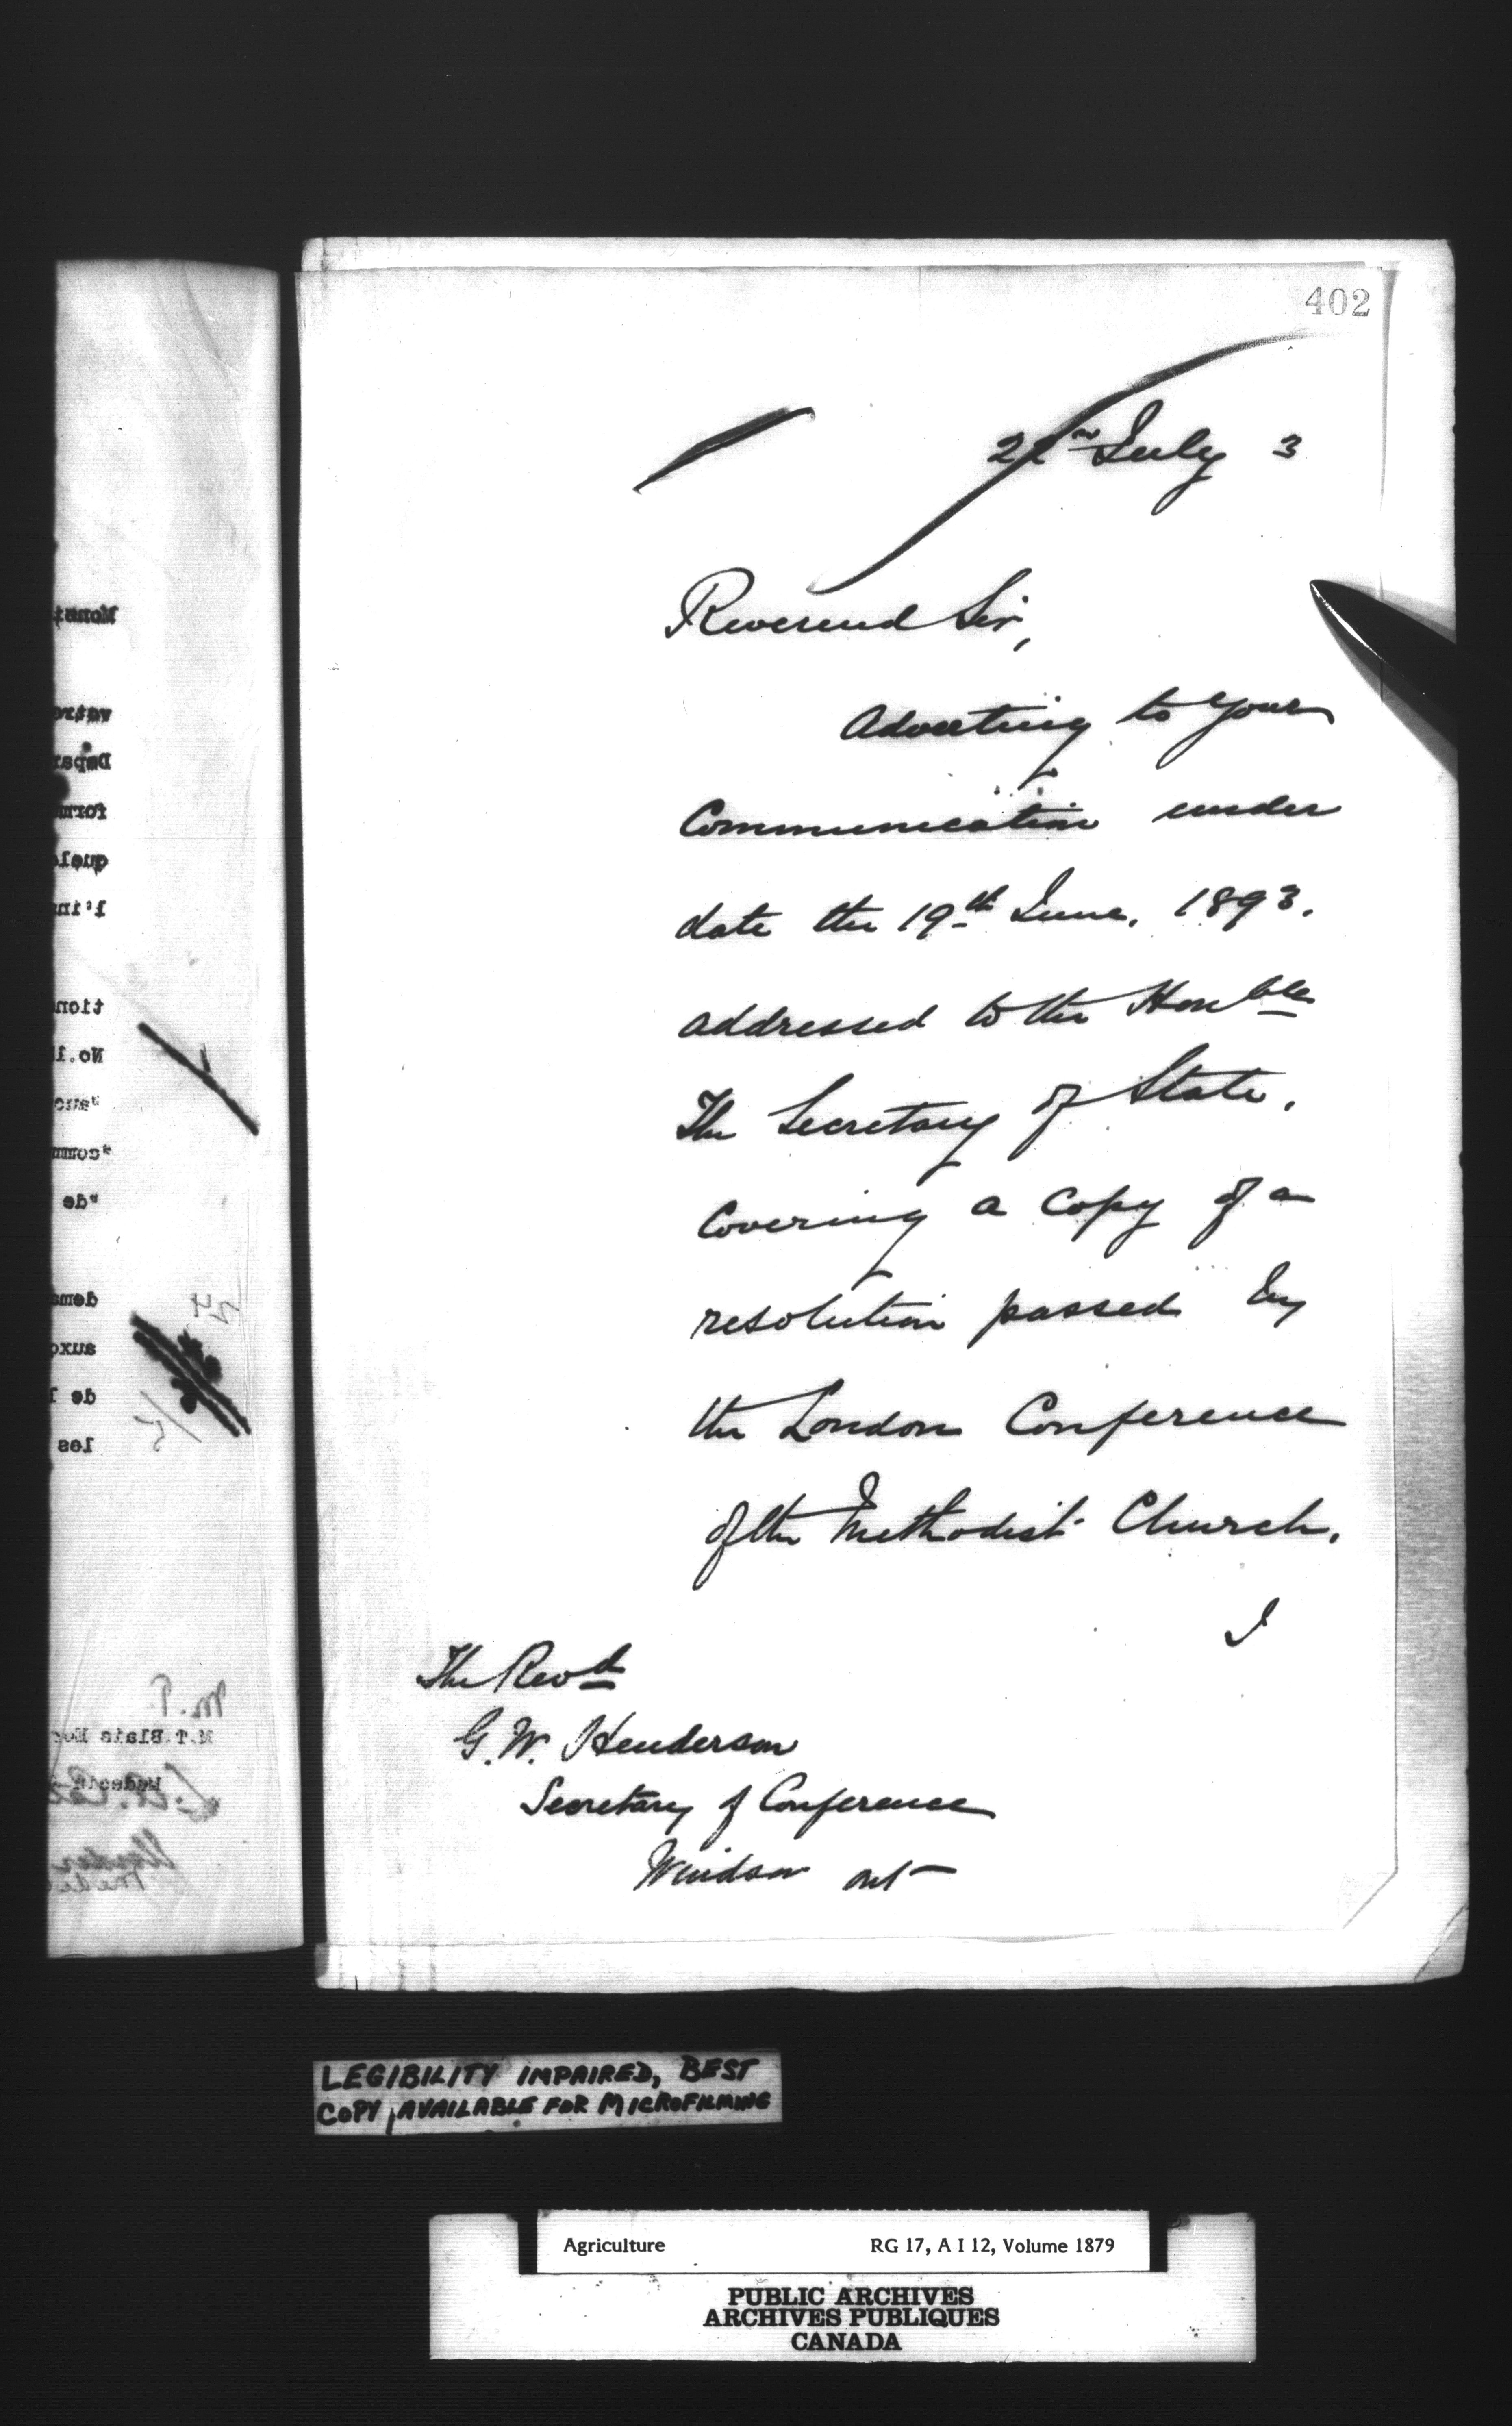 402
22nd July 3
Reverend Sir,
Adverting to your
Communication under
date the 19th June, 1893.
addressed to the Honble
The Secretary of State,
Covering a Copy of a
resolution passed by
the London Conference
of the Methodist Church.
I
The Revd
G. W. Henderson
Secretary of Conference
Windsor Ont
LEGIBILITY IMPAIRED, BEST
COPY AVAILABLE FOR MICROFILMING
Agriculture RG 17, A I 12, Volume 1879
PUBLIC ARCHIVES
ARCHIVES PUBLIQUES
CANADA